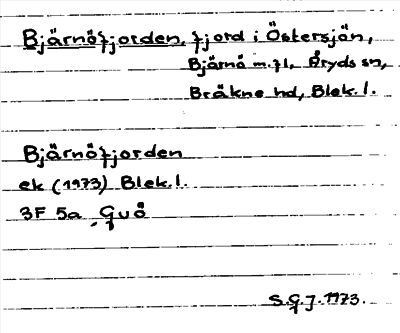 Bjärnöfjorden, fjord i Östersjön,
Bjärnö m.fl., Åryds sn,
Bräkne hd, Blek.l.
Bjärnöfjorden
ek (1973) Blek.l.
3F 5a Guö
S.G.J. 1973.